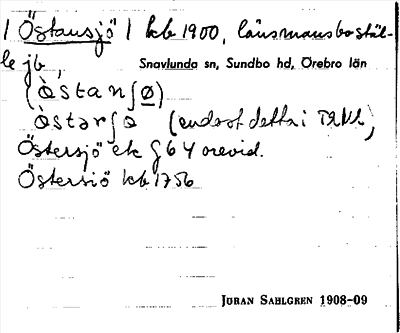 1 Östansjö 1 kb 1900, länsmansbostäl-
le jb,
Snavlunda sn, Sundbo hd, Örebro län
(ö̀stanʃø)
ö̀stərʃə (endast detta i
Östersjö ek § 64 orevid.
Östersiö kb 1756
JÖRAN SAHLGREN 1908-09